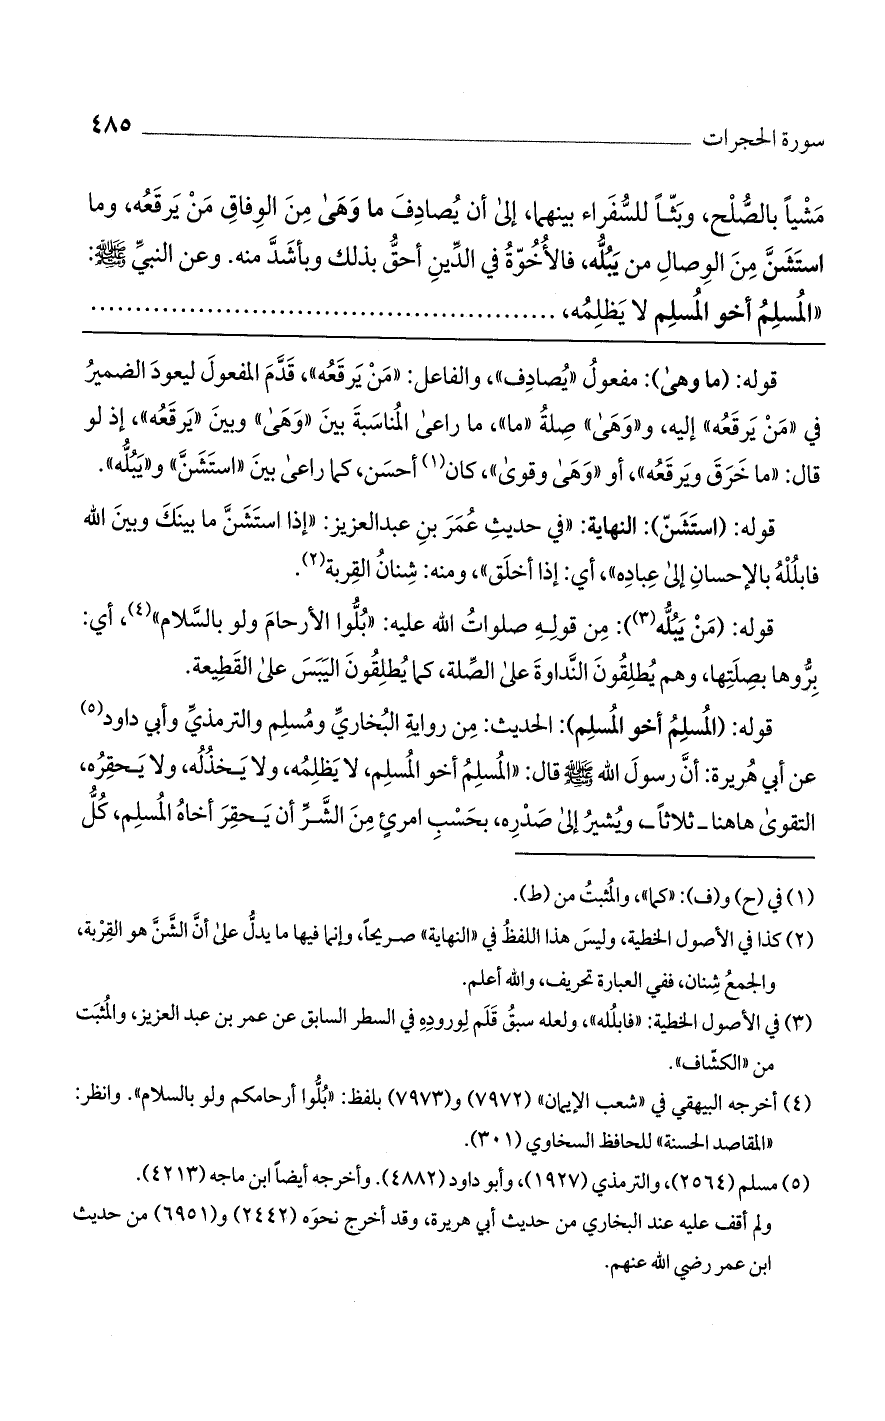 سورة الحجرات ٤٨٥
مَشْياً بالصُّلْح، وبَثّاً للسُّفَراء بينهما، إلىٰ أن يُصادِفَ ما وَهَىٰ مِنَ الوِفاقِ مَنْ يَرقَعُه، وما
استَشَنَّ مِنَ الوِصالِ من يَبُلُّه، فالأُخُوّةُ في الدِّينِ أحقُّ بذلك وبأشَدَّ منه. وعن النبيِّ ﷺ:
«المُسلِمُ أخو المُسلِم لا يَظلِمُه، ..................................................
قوله: (ما وهىٰ): مفعولُ «يُصادِف»، والفاعل: «مَنْ يَرقَعُه»، قَدَّمَ المفعولَ ليعودَ الضميرُ
في «مَنْ يَرقَعُه» إليه، و«وَهَىٰ» صِلةُ «ما»، ما راعىٰ المُناسَبةَ بينَ «وَهَىٰ» وبينَ «يَرقَعُه»، إذ لو
قال: «ما خَرَقَ ويَرقَعُه»، أو «وَهَىٰ وقوىٰ»، كان(١) أحسَن، كما راعىٰ بينَ «استَشَنَّ» و«يَبُلُّه».
قوله: (استَشَنّ): النهاية: «في حديثِ عُمَرَ بنِ عبدالعزيز: «إذا استَشَنَّ ما بينَكَ وبينَ الله
فابلُلْهُ بالإحسانِ إلىٰ عِبادِه»، أي: إذا أخلَق»، ومنه: شِنانُ القِربة(٢).
قوله: (مَنْ يَبُلُّه(٣)): مِن قولِهِ صلواتُ الله عليه: «بُلُّوا الأرحامَ ولو بالسَّلام»(٤)، أي:
بِرُّوها بصِلَتِها، وهم يُطلِقُونَ النَّداوةَ علىٰ الصِّلة، كما يُطلِقُونَ اليَبَسَ علىٰ القَطِيعة.
قوله: (المُسلِمُ أخو المُسلِم): الحديث: مِن روايةِ البُخاريِّ ومُسلِم والترمذيِّ وأبي داود(٥)
عن أبي هُريرة: أنَّ رسولَ الله ﷺ قال: «المُسلِمُ أخو المُسلِم، لا يَظلِمُه، ولا يَـخذُلُه، ولا يَـحقِرُه،
التقوىٰ هاهنا ـ ثلاثاً ـ، ويُشيرُ إلىٰ صَدْرِه، بحَسْبِ امرئٍ مِنَ الشَّرِّ أن يَـحقِرَ أخاهُ المُسلِم، كُلُّ
(١) في (ح) و(ف): «كما»، والمُثبتُ من (ط).
(٢) كذا في الأصول الخطية، وليسَ هذا اللفظُ في «النهاية» صريحاً، وإنما فيها ما يدلُّ علىٰ أنَّ الشَّنَّ هو القِرْبة،
والجمعُ شِنان، ففي العبارة تحريف، والله أعلم.
(٣) في الأصول الخطية: «فابلُله»، ولعله سبقُ قَلَم لِورودِهِ في السطر السابق عن عمر بن عبد العزيز، والمُثبَت
من «الكشّاف».
(٤) أخرجه البيهقي في «شعب الإيمان» (٧٩٧٢) و(٧٩٧٣) بلفظ: «بُلُّوا أرحامكم ولو بالسلام». وانظر:
«المقاصد الحسنة» للحافظ السخاوي (٣٠١).
(٥) مسلم (٢٥٦٤)، والترمذي (١٩٢٧)، وأبو داود (٤٨٨٢). وأخرجه أيضاً ابن ماجه (٤٢١٣).
ولم أقف عليه عند البخاري من حديث أبي هريرة، وقد أخرج نحوَه (٢٤٤٢) و(٦٩٥١) من حديث
ابن عمر رضي الله عنهم.